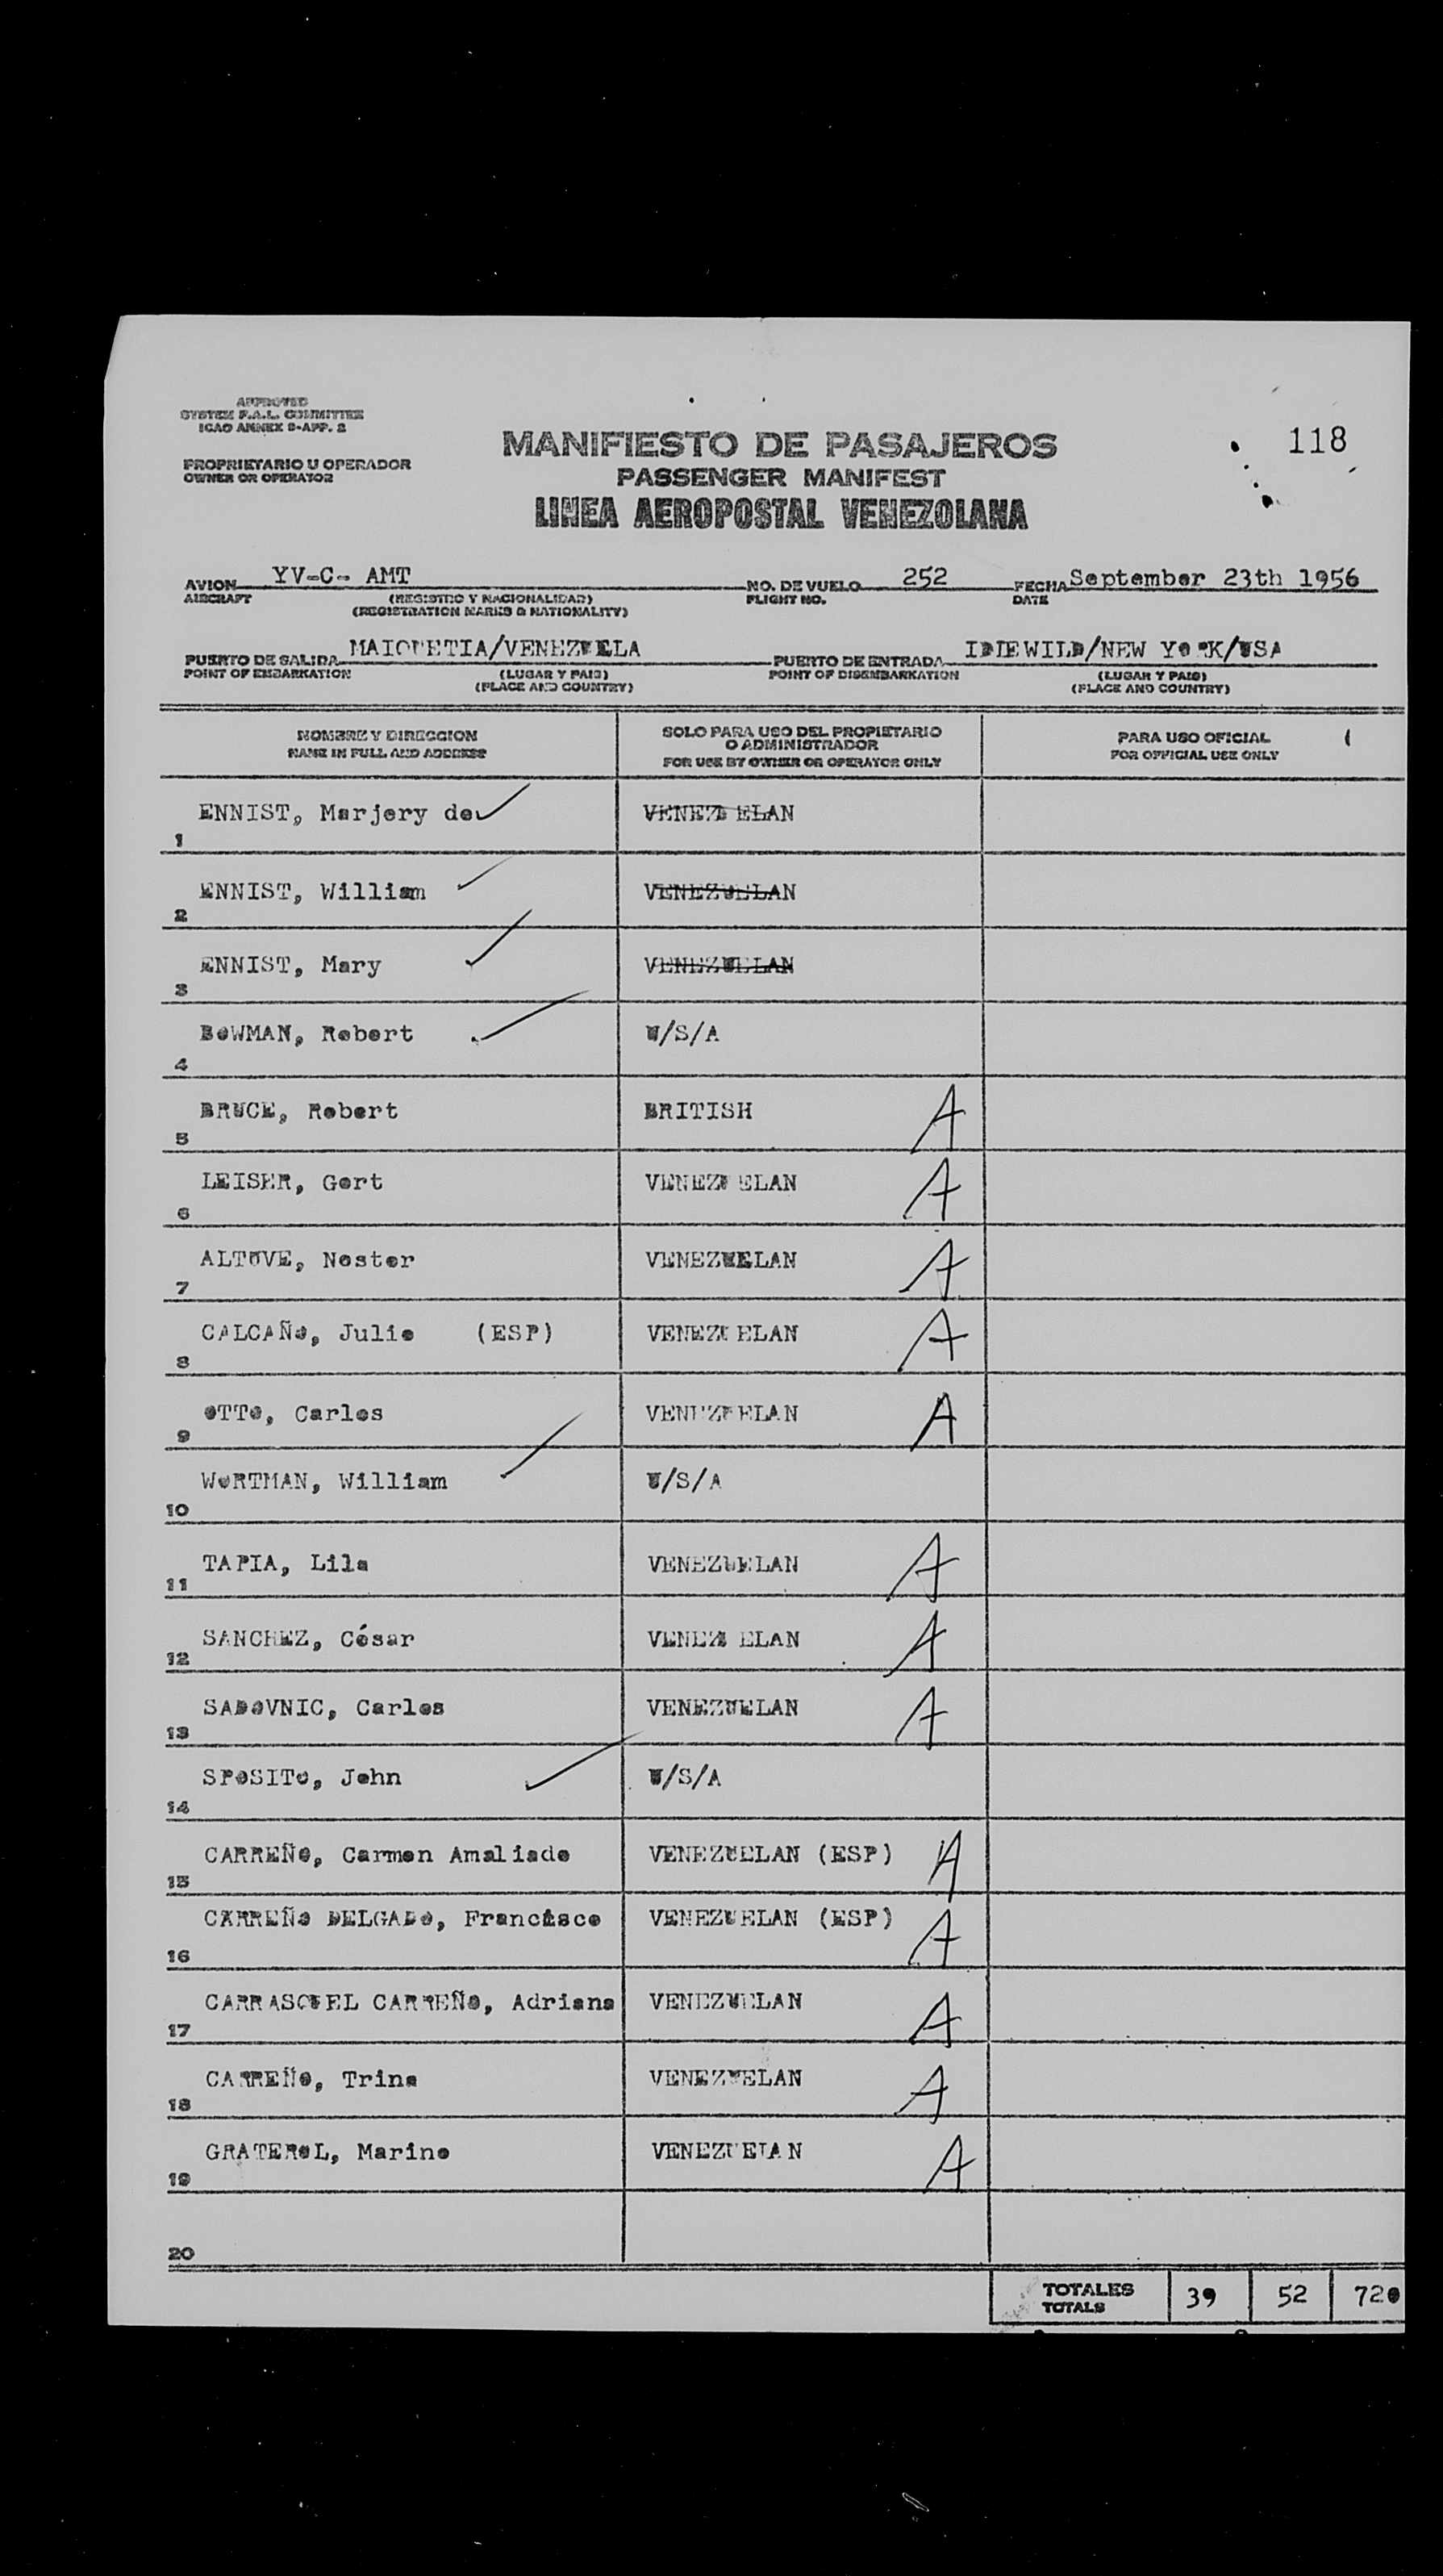 APPROVED
SYSTEM F.A.L. COMMITTEE
ICAO ANNEX 9-APP. 2
118
MANIFIESTO DE PASAJEROS
PROPRIETARIO U OPERADOR
OWNER OR OPERATOR
PASSENGER MANIFEST
LINEA AEROPOSTAL VENEZOLANA
AVION YV-C- AMT NO. DE VUELO 252 FECHA September 23th 1956
AIRCRAFT (REGISTRO Y NACIONALIDAD) FLIGHT NO. DATE
(REGISTRATION MARKS & NATIONALITY)
PUERTO DE SALIDA MAIQUETIA/VENEZUELA PUERTO DE ENTRADA IDIEWILD/NEW YORK/USA
POINT OF EMBARKATION (LUGAR Y PAIS) POINT OF DISEMBARKATION (LUGAR Y PAIS)
(PLACE AND COUNTRY) (PLACE AND COUNTRY)
NOMBRE Y DIRECCION
NAME IN FULL AND ADDRESS
SOLO PARA USO DEL PROPIETARIO
O ADMINISTRADOR
FOR USE BY OWNER OR OPERATOR ONLY
PARA USO OFICIAL
FOR OFFICIAL USE ONLY
1 ENNIST, Marjery de VENEZUELAN
2 ENNIST, William VENEZUELAN
3 ENNIST, Mary VENEZUELAN
4 BOWMAN, Robert U/S/A
5 BRUCE, Robert BRITISH A
6 LEISER, Gert VENEZUELAN A
7 ALTUVE, Nestor VENEZUELAN A
8 CALCAÑO, Julio (ESP) VENEZUELAN A
9 OTTO, Carlos VENEZUELAN A
10 WORTMAN, William U/S/A
11 TAPIA, Lila VENEZUELAN A
12 SANCHEZ, César VENEZUELAN A
13 SADOVNIC, Carlos VENEZUELAN A
14 SPOSITO, John U/S/A
15 CARREÑO, Carmen Amaliade VENEZUELAN (ESP) A
16 CARREÑO DELGADO, Francisco VENEZUELAN (ESP) A
17 CARRASQUEL CARREÑO, Adriana VENEZUELAN A
18 CARREÑO, Trina VENEZUELAN A
19 GRATEROL, Marino VENEZUELAN A
20
TOTALES 39 52 720
TOTALS